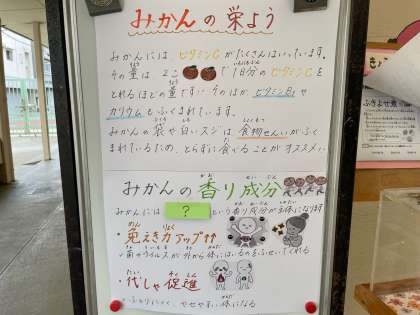 みかんの栄よう
みかんには ビタミンCがたくさんはいっています。
その量は 2こ で 1日分のビタミンCを
とれるほどの量です。そのほか、ビタミンB₁や
カリウムもふくまれています。
みかんの袋や白いスジは食物せんいがふく
まれているため、とらずに食べることがオススメ。
みかんの香り成分
みかんには ? という香り成分が主体になります
・免えき力アップ↑↑
菌やウイルスが外から体にはいるのをふせいでくれる
・代しゃ促進
ふとりにくく、やせやすい体になる